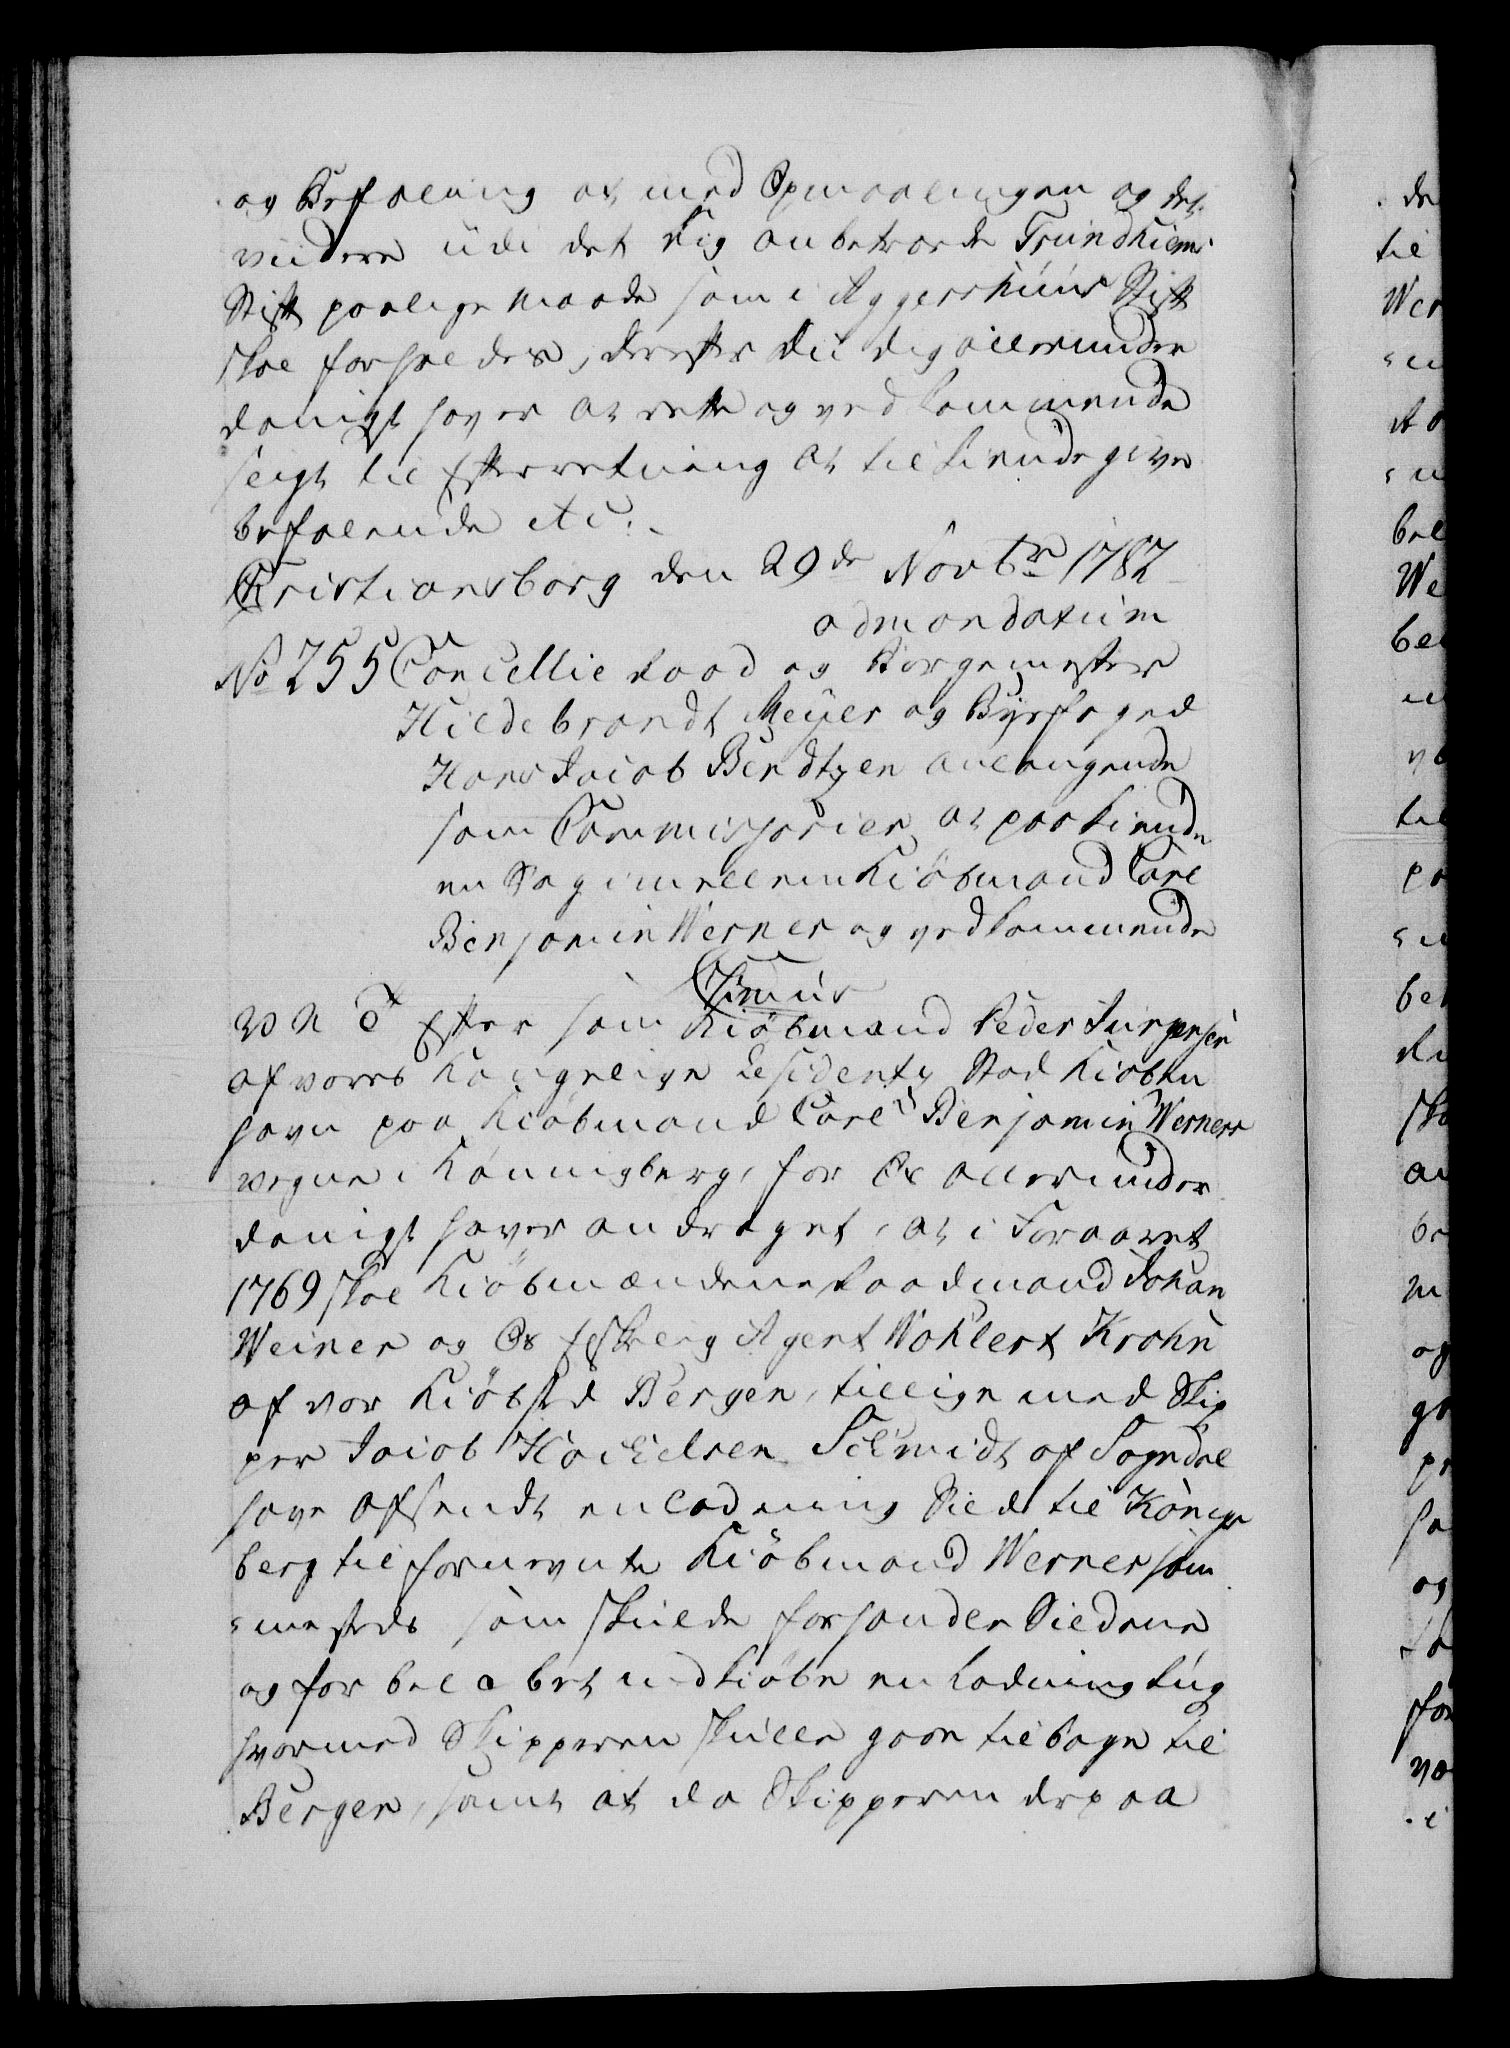 og Befaling at med Opmaalingen og det
viidere udi det dig anbetroede Trundhiems
Stift paa lige Maade som i Aggershuus Stift
skal forholdes, derefter du dig allerunder
danigst haver at rette og vedkommende
sligt til Efterretning at tilkiende give
befalende etc:
Christiansborg den 29de Novbr 1782
admandatum
No 255 Cancellie Raad og Borgemester
Hildebrandt Meyer og Byefoged
Hans Jacob Bendtzen anlangende
som Commissarier at paakiende
en Sag imellem Kiöbmand Carl
Benjamin Werner og vedkommende
Efter som Kiöbmand Peder Jürgensen
af vores Kongelige Residentz Stad Kiøben
havn paa Kiöbmand Carl Benjamin Werners
vegne i Kønnigberg, for Os allerunder
danigst haver andraget, at i Foraaret
1769 skal Kiöbmændene Raadmand Johan
Weiner og Agent Wohlert Krohn
af vor Kiöbsted Bergen, tillige med Skip
per Jacob Schmidt af Sogndal
have afsendt en Ladning Sild til Königs
berg til fornevnte Kiöbmand Werner som
sammesteds som skulde forhandle Sildene
og for beløbet indkiöbe en Ladning Rug
hvormed Skipperen skulle gaae tilbage til
Bergen, samt at da Skipperen derpaa